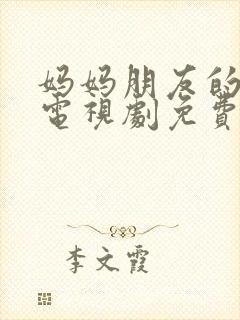 妈妈朋友的
電視劇免費
李文霞